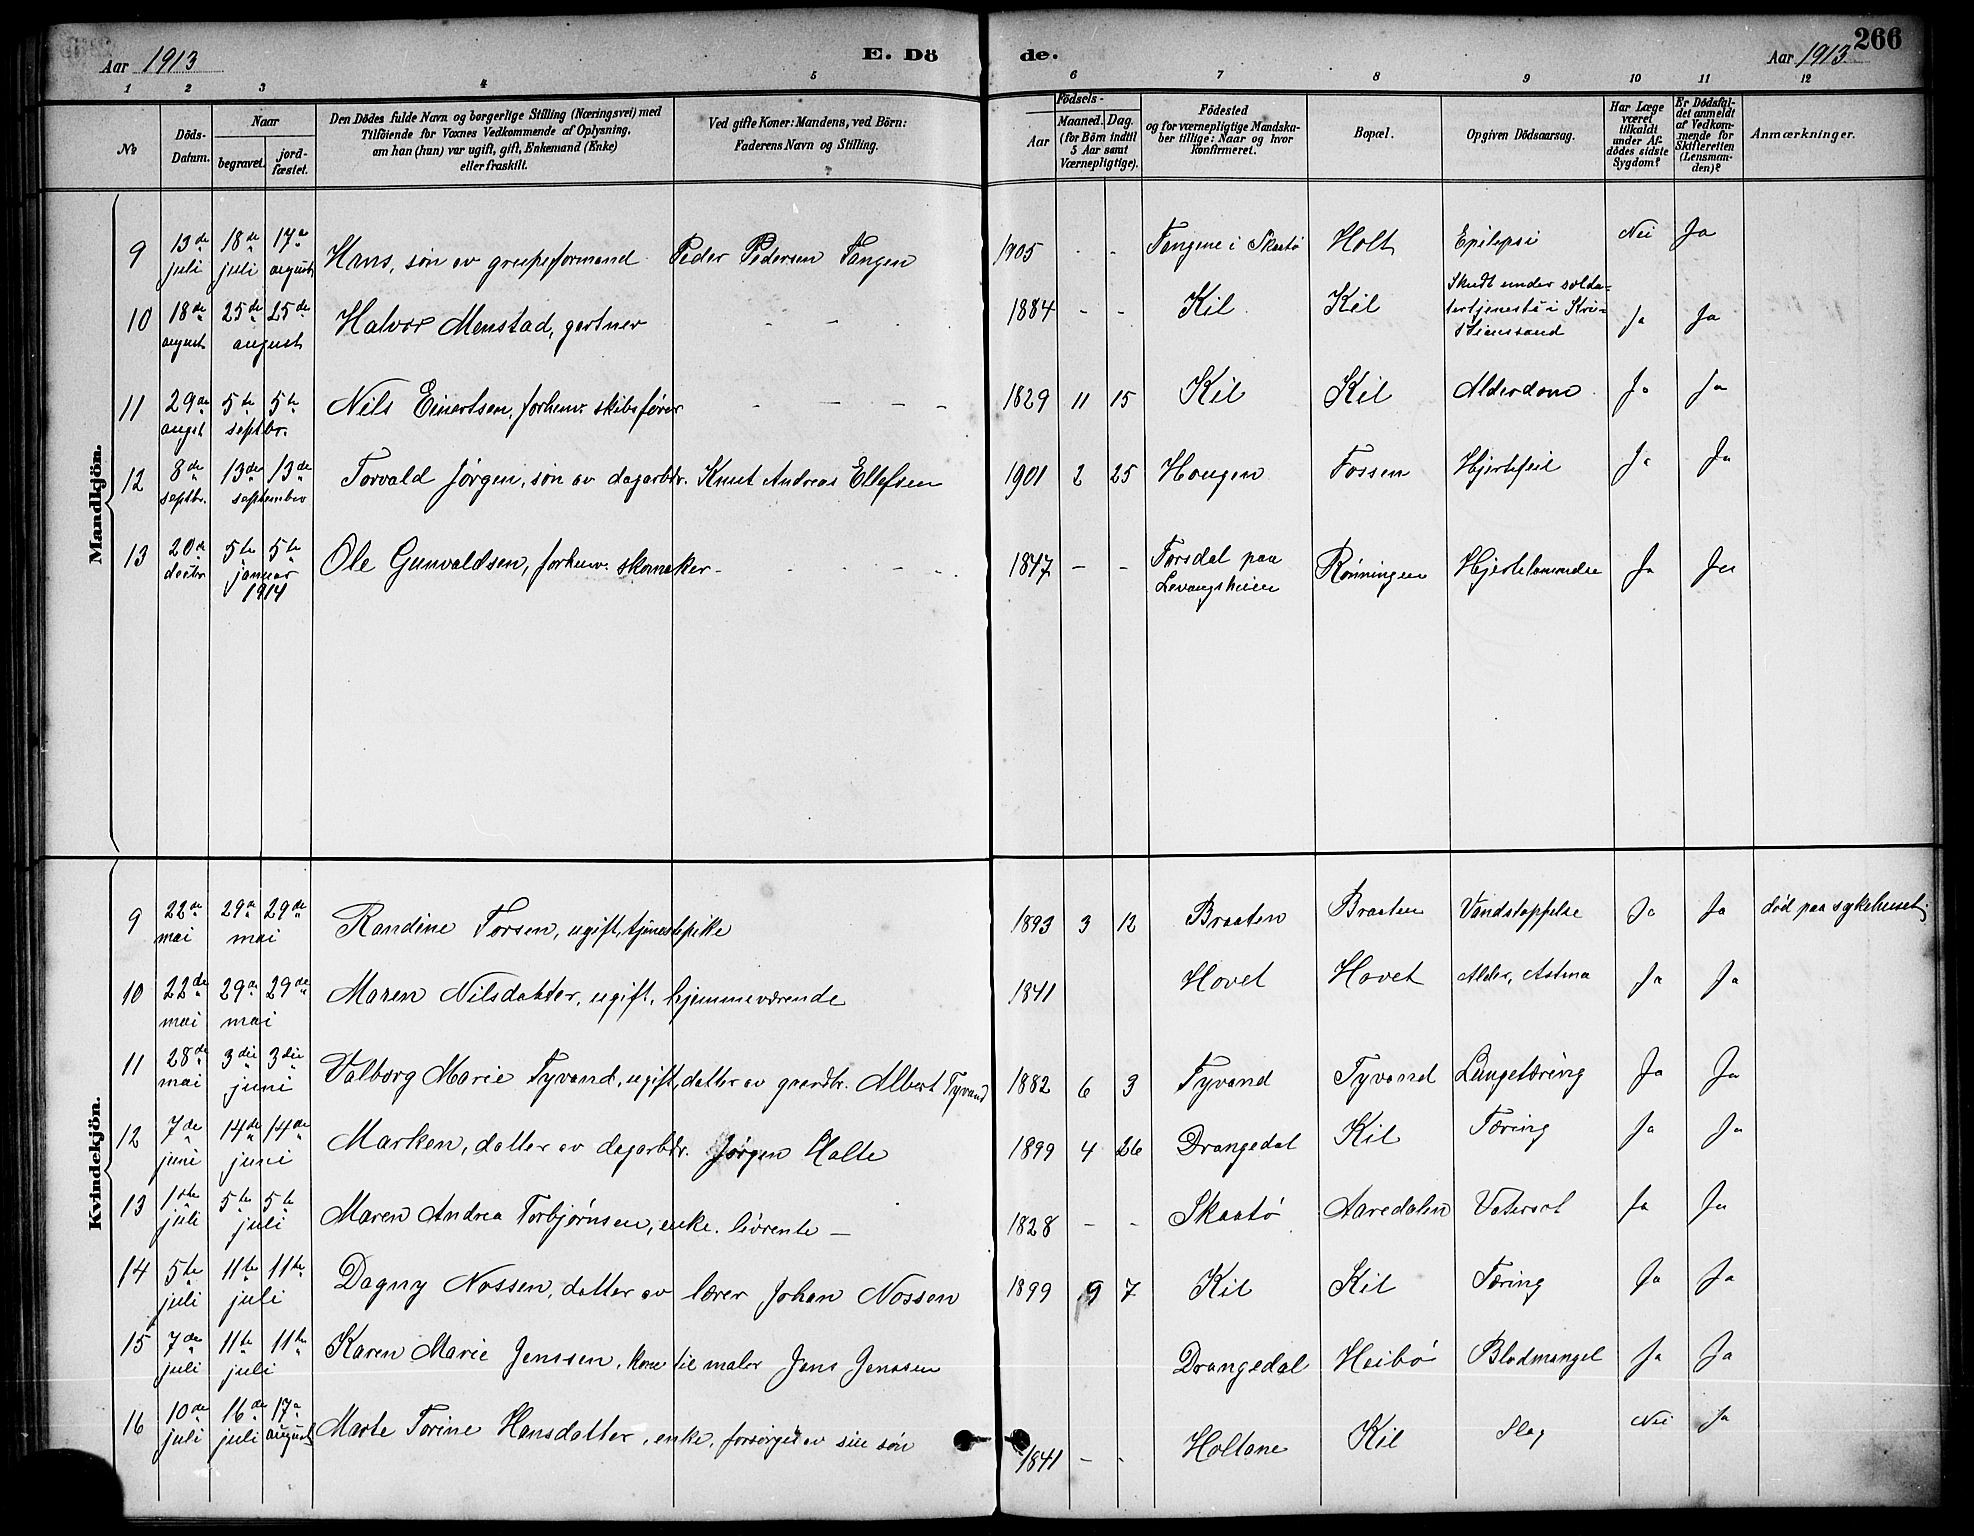 Aar 1913
E. Dö
de.
Aar 1913
266
1 2 3 4 5 6 7 8 9 10 11 12
No
Döds-Datum.
Naar
begravet.
jord-fæstet.
Den Dödes fulde Navn og borgerlige Stilling (Næringsvei) med
Tilföiende for Voxnes Vedkommende af Oplysning,
om han (hun) var ugift, gift, Enkemand (Enke)
eller fraskilt.
Ved gifte Koner: Mandens, ved Börn:
Faderens Navn og Stilling.
Födsels-
Aar
Maaned. Dag.
(for Börn indtil
5 Aar samt
Værnepligtige).
Födested
og for værnepligtige Mandska-
ber tillige: Naar og hvor
konfirmeret.
Bopæl.
Opgiven Dödsaarsag.
Har Læge
været
tilkaldt
under Af-
dödes sidste
Sygdom?
Er Dödsfal-
det anmeldt
af Vedkom-
mende for
Skifteretten
(Lensman-
den)?
Anmærkninger.
Mandkjön.
9 13de juli 18de juli 17de august Hans, søn av grubeformand Peder Pedersen Tangen 1905 - - Tangene i Skaatø Holt Epilepsi Nei Ja
10 18de august 25de 25de august Halvor Menstad, gartner - - - 1884 - - Kil Kil Skudt under solda-
tertjeneste i Kri-
stianssand Ja Ja
11 29de augst 5te 5te septbr. Nils Einertsen, forhenv. skibsfører - - - - 1829 11 15 Kil Kil Alderdom Ja Ja
12 8de septbr. 13de 13de september Torvald Jørgen, søn av dagarbdr. Knut Andreas Ellefsen 1901 2 25 Hougen Fossen Hjertefeil Ja Ja
13 20de decbr 5te 5te januar 1914 Ole Gunvaldsen, forhenv. skomaker - - - - 1847 - - Torsdal paa
Levangsheien Rønningen Hjertelammelse Ja Ja
Kvindekjön.
9 22de mai 29de 29de mai Randine Torsen, ugift, tjenestepike 1893 3 12 Braaten Braaten Vandstoppelse Ja Ja død paa sykehuset.
10 22de mai 29de 29de mai Maren Nilsdatter, ugift, hjemmeværende 1841 Hovet Hovet Alder, Astma Ja Ja
11 28de mai 3die 3die juni Valborg Marie Tyvand, ugift, datter av gaardbr. Albert Tyvand 1882 6 3 Tyvand Tyvand Lungetæring Ja Ja
12 7de juni 14de 14de juni Marken, datter av dagarbdr. Jørgen Halte 1899 4 26 Drangedal Kil Tæring Ja Ja
13 1ste juli 5te 5te juli Maren Andrea Torbjørnsen, enke. livrente - 1828 - - Skaatø Aaredalen Vatersot Ja Ja
14 5te juli 11te 11te juli Dagny Nossen, datter av lærer Johan Nossen 1899 9 7 Kil Kil Tæring Ja Ja
15 7de juli 11te 11te juli Karen Marie Jenssen, kone til maler Jens Jenssen Drangedal Heibø Blodmangel Ja Ja
16 10de juli 16de juli 17de august Marte Torine Hansdatter, enke, forsørget av sin søn 1841 - - Holtane Kil Slag Nei Ja